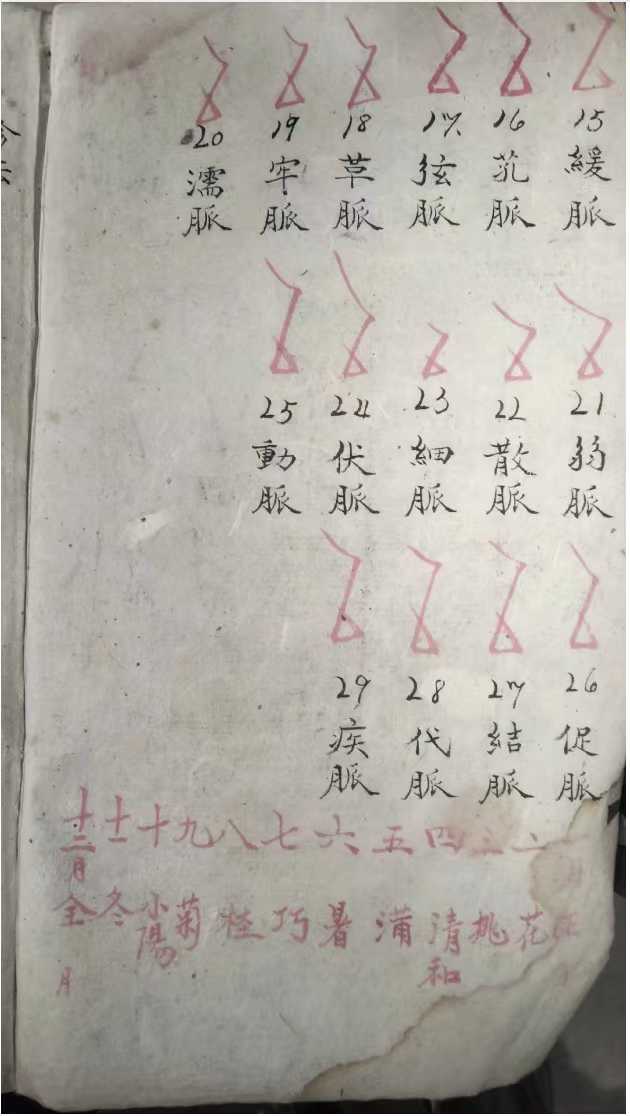 15 緩脈
16 芤脈
17 弦脈
18 草脈
19 牢脈
20 濡脈
21 弱脈
22 散脈
23 細脈
24 伏脈
25 動脈
26 促脈
27 結脈
28 代脈
29 疾脈
二 花
三 桃
四 清和
五 蒲
六 暑
七 巧
八 桂
九 菊
十 小陽
十一 冬
十二月 全月